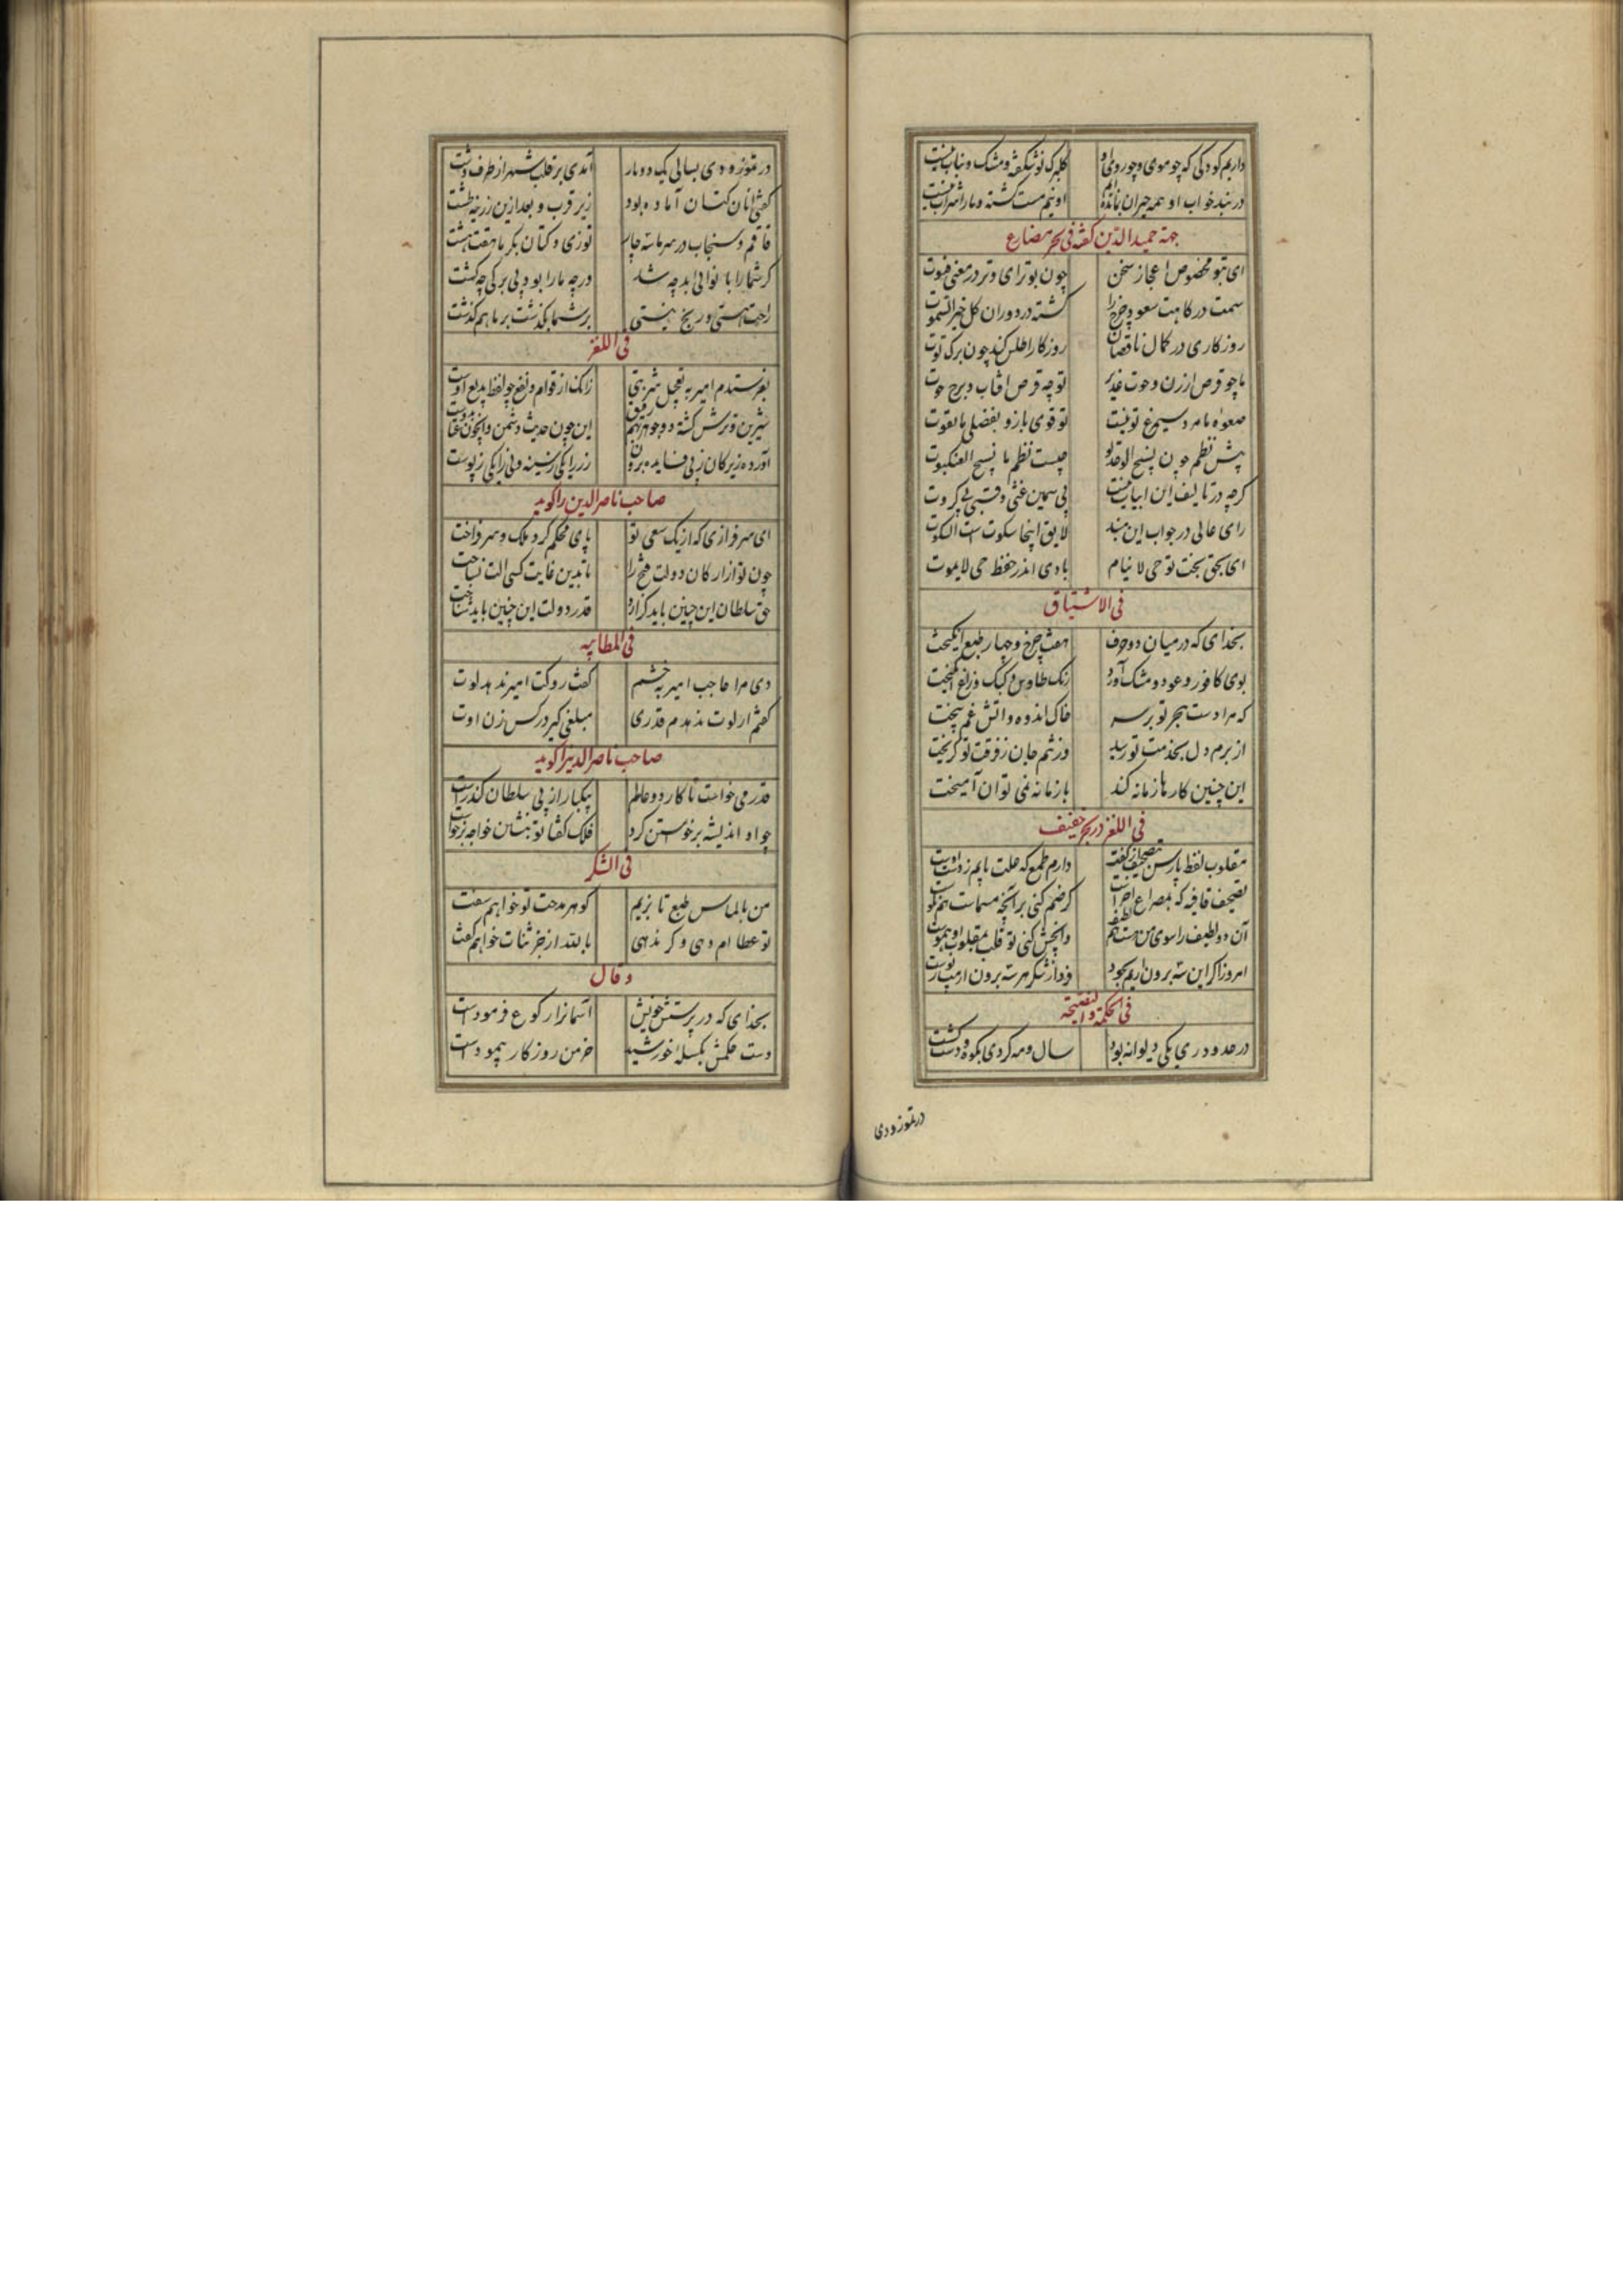 داریم کودکی که چو موی و چو روی او گلبرک نوشکفته و مشک و نیاب نیست
در بند خواب او همه حیران بمانده‌ایم او نیم مست گشته و ما را شراب نیست
جهة حمیدالدین گفته فی بحر مضارع
ای بتو مخصوص اعجاز سخن چون بوتر ای وتر در معنی قنوت
سمت درکاهت سعود چرخ را گشته در دوران کل خیر السموت
روزکاری در کمال ناقصان روزکار اطلس کند چون برک توت
ما چو قرص ارزن و حوت غدیر تو چه قرص آفتاب و برج حوت
صعوه ما مرد سیمرغ تو نیست تو قوی بازو بفضلی ما بقوت
پیش نظم چون نسیج الوحد تو چیست نظم ما نسیج العنکبوت
کرچه در تالیف این ابیات نیست بی سمین غثی و قسبی بی کروت
رای عالی در جواب این مبند لایق اینجا سکوت است السکوت
ای بحق بخت تو حی لا ینام بادی اندر حفظ حی لا یموت
فی الاشتیاق
بخدای که در میان دو حرف هفت چرخ و چهار طبع انکیخت
بوی کافور و عود و مشک آورد رنک طاوس و کبک و زاغ آمیخت
که مرا دست هجر تو بر سر خاک اندوه و آتش غم بیخت
از برم دل بخدمت تو رسید وز تنم جان ز فرقت تو کریخت
این چنین کارها زمانه کند با زمانه نمی توان آمیخت
فی اللغز در بحر خفیف
مقلوب لفظ پارس بتصحیف از کفت دارم طمع که علت با یم ز دست اوست
تصحیف قافیه که بمصراع آخر است کر ضم کنی بر آنچه مسماست هم نکوست
آن دو لطیف را سوی من هست هم لطیف
امروز اکر این سه برون آری بجود فردا ز شکر هر سه برون آرمت ز پوست
فی الحکمة و النصیحة
در حدود ری یکی دیوانه بود سال و مه کردی بکوه و دشت کشت
در تموز و دی
در تموز و دی بسالی یک دو بار آمدی بر قلب شهر از طرف دشت
کفتی ای آنان کتان آماده بود زیر قرب و بعد ازین زرینه طشت
قاقم و سنجاب در سرما سه چار توزی و کتان بکرما هفت هشت
کر شما را با نوایی بد چه شد ور چه ما را بود بی برکی چه کشت
راحت هستی و رنج نیستی بر شما بگذشت بر ما هم کذشت
فی اللغز
بفرستدم امیر بتعجیل شربتی زانک از قوام و نفع چو لفظ بدیع اوست
شیرین و ترش کشته دو جوهر بهم رفیق
صاحب ناصر الدین را کوید
ای سرفرازی که از یک سعی تو پای محکم کرد ملک و سر فراخت
چون تو از ارکان دولت فتح را تا بدین غایت کسی آلت نساخت
حق سلطان این چنین باید کزارد قدر دولت این چنین باید شناخت
فی المطایبه
دی مرا حاجب امیر بخشم کفت روکت امیر ندهد لوت
کفتم ار لوت ندهدم قدری مبلغی کیر در کس زن اوت
صاحب ناصر الدین را کوید
قدر می خواست تا کار دو عالم بیکبار از پی سلطان کند راست
چو او اندیشه برخواستن کرد فلک کفتا تو بنشین خواجه برخواست
فی الشکر
من بالماس طبع تا بزیم کوهر مدحت تو خواهم سفت
تو عطا ام دهی و کر ندهی بالله ار جز ثنات خواهم کفت
و قال
بخدای که در پرستش خویش آسمانرا رکوع فرمودست
دست حکمش بکیله خورشید خرمن روزکار پیمودست